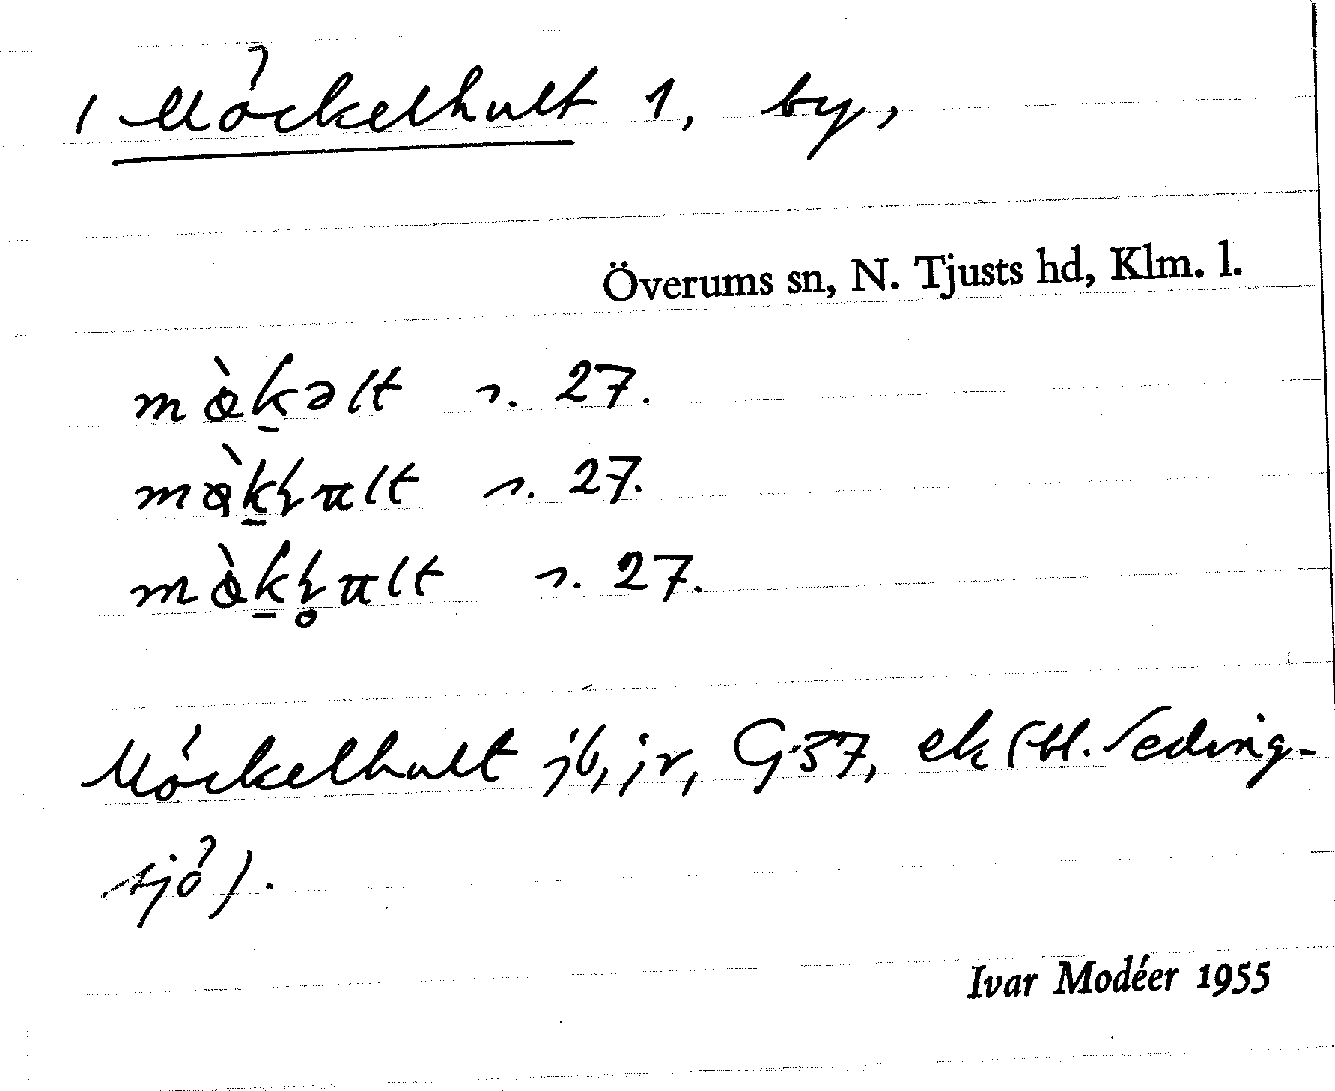 ( Möckelhult 1, by,
Överums sn, N. Tjusts hd, Klm. l.
mø̀k̠əlt s. 27.
s. 27.
s. 27.
Möckelhult jb, jr, G 37, ek (bl. Seding-
sjö).
Ivar Modéer 1955